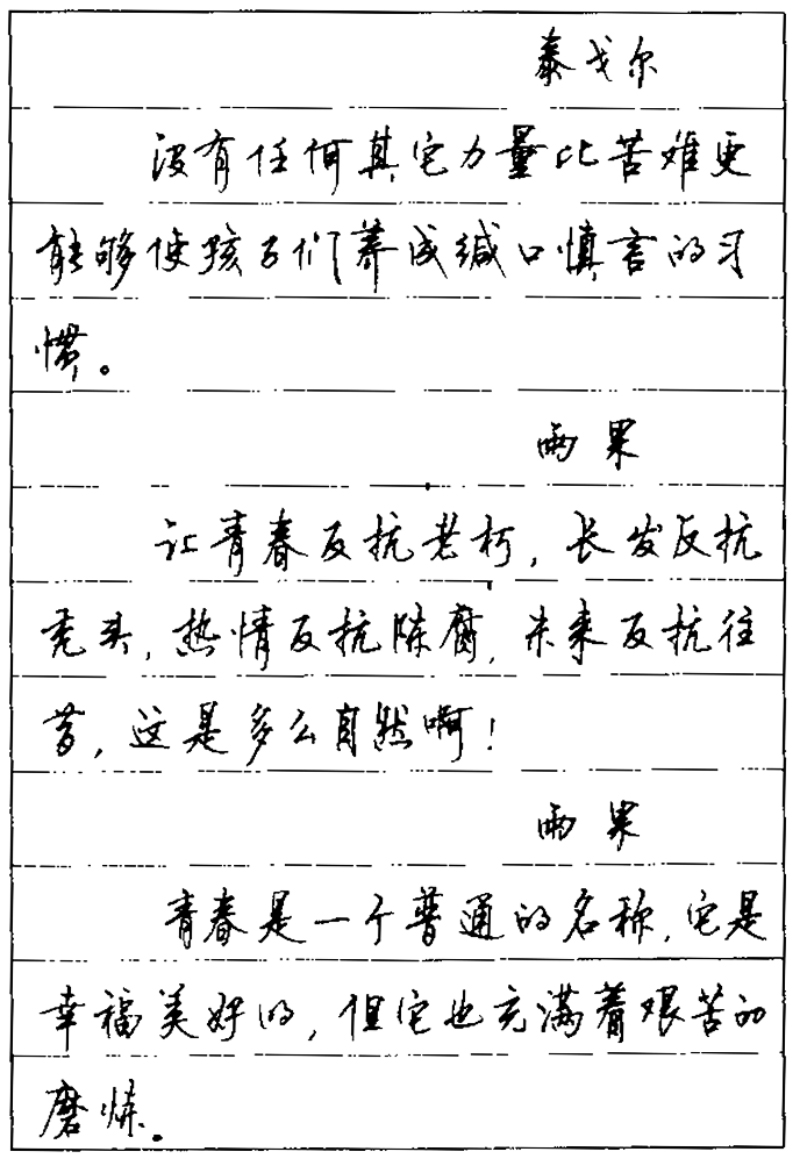 泰戈尔
没有任何其它力量比苦难更
能够使孩子们养成缄口慎言的习
惯。
雨果
让青春反抗老朽，长发反抗
秃头，热情反抗陈腐，未来反抗往
昔，这是多么自然啊！
雨果
青春是一个普通的名称，它是
幸福美好的，但它也充满着艰苦的
磨炼。